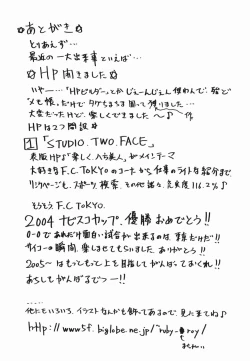 ☆あとがき☆
とりあえず…
最近の一大出来事といえば…
☆HP開きました☆
いやー…「HPビルダー」とか じぇーんじぇん 使わんで、
メモ帳、だけで タグもちまち 図って 作りました…
大変だった けど、楽しくできました ～♪
HPは2つ開設
1 「STUDIO.TWO.FACE」
表版HP♪ 楽しく、 がメインテーマ
大好きな F.C.TOKYO のコーナーから 仕事のライトな紹介まで
リンクページも、スポーツ、検索、その他諸々、充実度 116.2%♪
そうそう F.C.TOKYO.
2004 ナビスコカップ、優勝おめでとう!!
0-0で あれだけ面白い試合が 出来るのは 東京だけだ!!
サイコーの瞬間、楽しませてもらいました ありがとう!!
2005～ はもっともっと 上を目指して がんばっておくれ!!
あちしもがんばるでつー!!
......
他にもいろいろ、イラストなんかも飾ってあるので、見に来てね♪
http://www5f.biglobe.ne.jp/~ruby-roy/